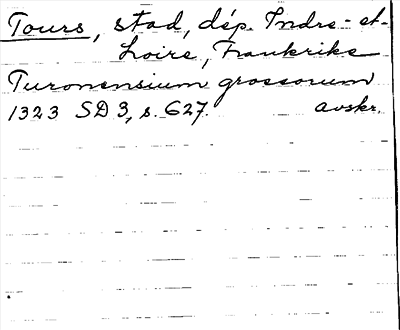 Tours, stad, dép. Indre-et-
Loire, Frankrike
Turonensium grossorum
1323 SD 3, s. 627. avskr.